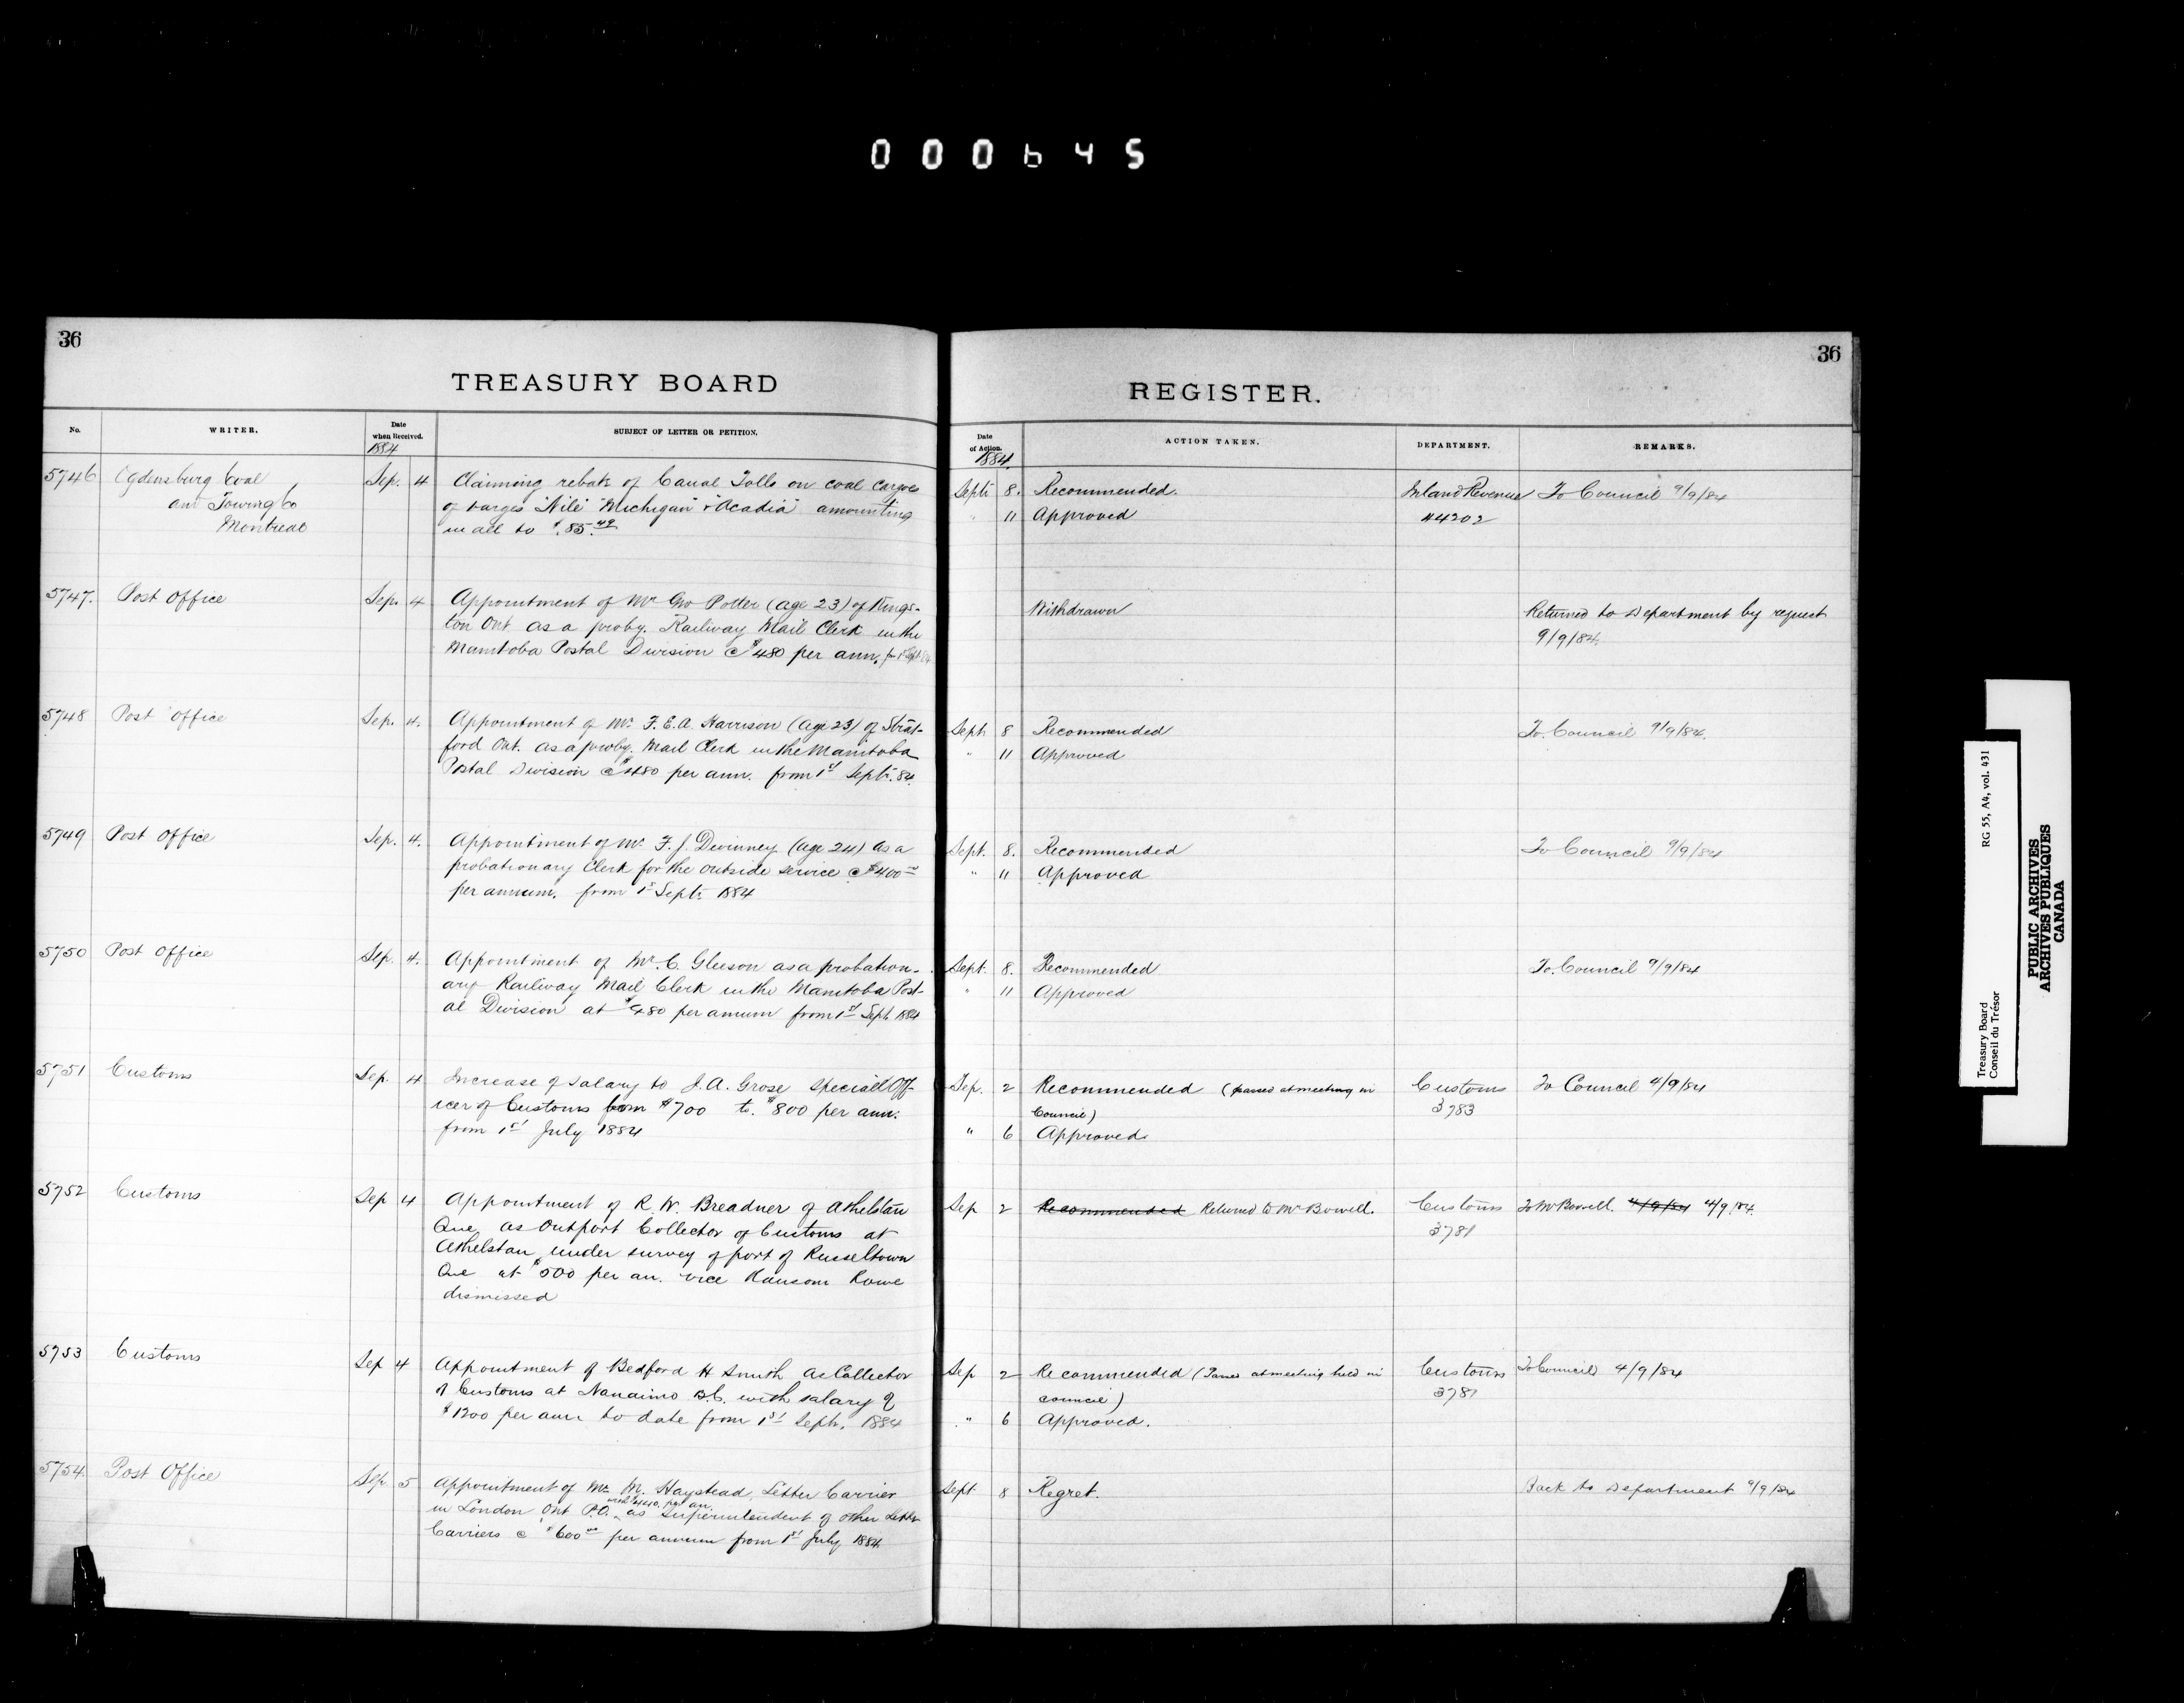 000645
36
36
TREASURY BOARD
REGISTER.
No.
WRITER.
Date
when Received.
1884
SUBJECT OF LETTER OR PETITION.
Date
of Action.
1884
ACTION TAKEN.
DEPARTMENT.
REMARKS.
5746
Ogdensburg Coal
and Towing Co
Montreal
Sep. 4
Claiming rebate of Canal Tolls on coal cargoes
of barges "Nile" "Michigan" & "Acadia" amounting
in all to $85.49
Sept. 8. Recommended.
" 11 Approved
Inland Revenue
#4202
To Council 9/9/84
5747.
Post Office
Sep. 4
Appointment of Mr Geo Potter (age 23) of Kings-
ton Ont as a proby. Railway Mail Clerk in the
Manitoba Postal Division @ $480 per ann. fr 1st Sept 84
Withdrawn
Returned to Department by request
9/9/84
5748
Post Office
Sep. 4.
Appointment of Mr. F. E. A. Harrison (age 23) of Strat-
ford Ont. as a proby. Mail Clerk in the Manitoba
Postal Division @ $480 per ann. from 1st Sept. 84.
Sept. 8 Recommended
" 11 Approved
To Council 9/9/84.
5749
Post Office
Sep. 4.
Appointment of Mr. F. J. Devinney (age 24) as a
probationary Clerk for the outside service @ $400
per annum. from 1st Sept. 1884
Sept. 8. Recommended
" 11 Approved
To Council 9/9/84
5750
Post Office
Sep. 4.
Appointment of Mr. C. Gleeson as a probation-
ary Railway Mail Clerk in the Manitoba Post-
al Division at $480 per annum from 1st Sept. 1884
Sept. 8. Recommended
" 11 Approved
To Council 9/9/84
5751
Customs
Sep. 4
Increase of salary to J. A. Grose Special Off-
icer of Customs from $700 to $800 per ann.
from 1st July 1884
Sep. 2 Recommended (passed at meeting in
Council)
" 6 Approved
Customs
3783
To Council 4/9/84
5752
Customs
Sep 4
Appointment of R. W. Breadner of Athelstan
Que as Outport Collector of Customs at
Athelstan under survey of port of Russeltown
Que at $500 per an. vice Ransom Rowe
dismissed
Sep 2 Recommended Returned to Mr Bowell.
Customs
3781
To Mr Bowell. 4/9/84 4/9/84.
5753
Customs
Sep 4
Appointment of Bedford H Smith as Collector
of Customs at Nanaimo B.C. with salary of
$1200 per ann to date from 1st Sept. 1884
Sep 2 Recommended (Passed at meeting held in
council)
" 6 Approved.
Customs
3781
To Council 4/9/84
5754.
Post Office
Sep 5
Appointment of Mr. M. Haystead, Letter Carrier
with $440. per an.
in London Ont P.O. as Superintendent of other Letter
Carriers @ $600 per annum from 1st July 1884
Sept 8 Regret.
Back to Department 9/9/84
Treasury Board RG 55, A4, vol. 431
Conseil du Trésor
PUBLIC ARCHIVES
ARCHIVES PUBLIQUES
CANADA